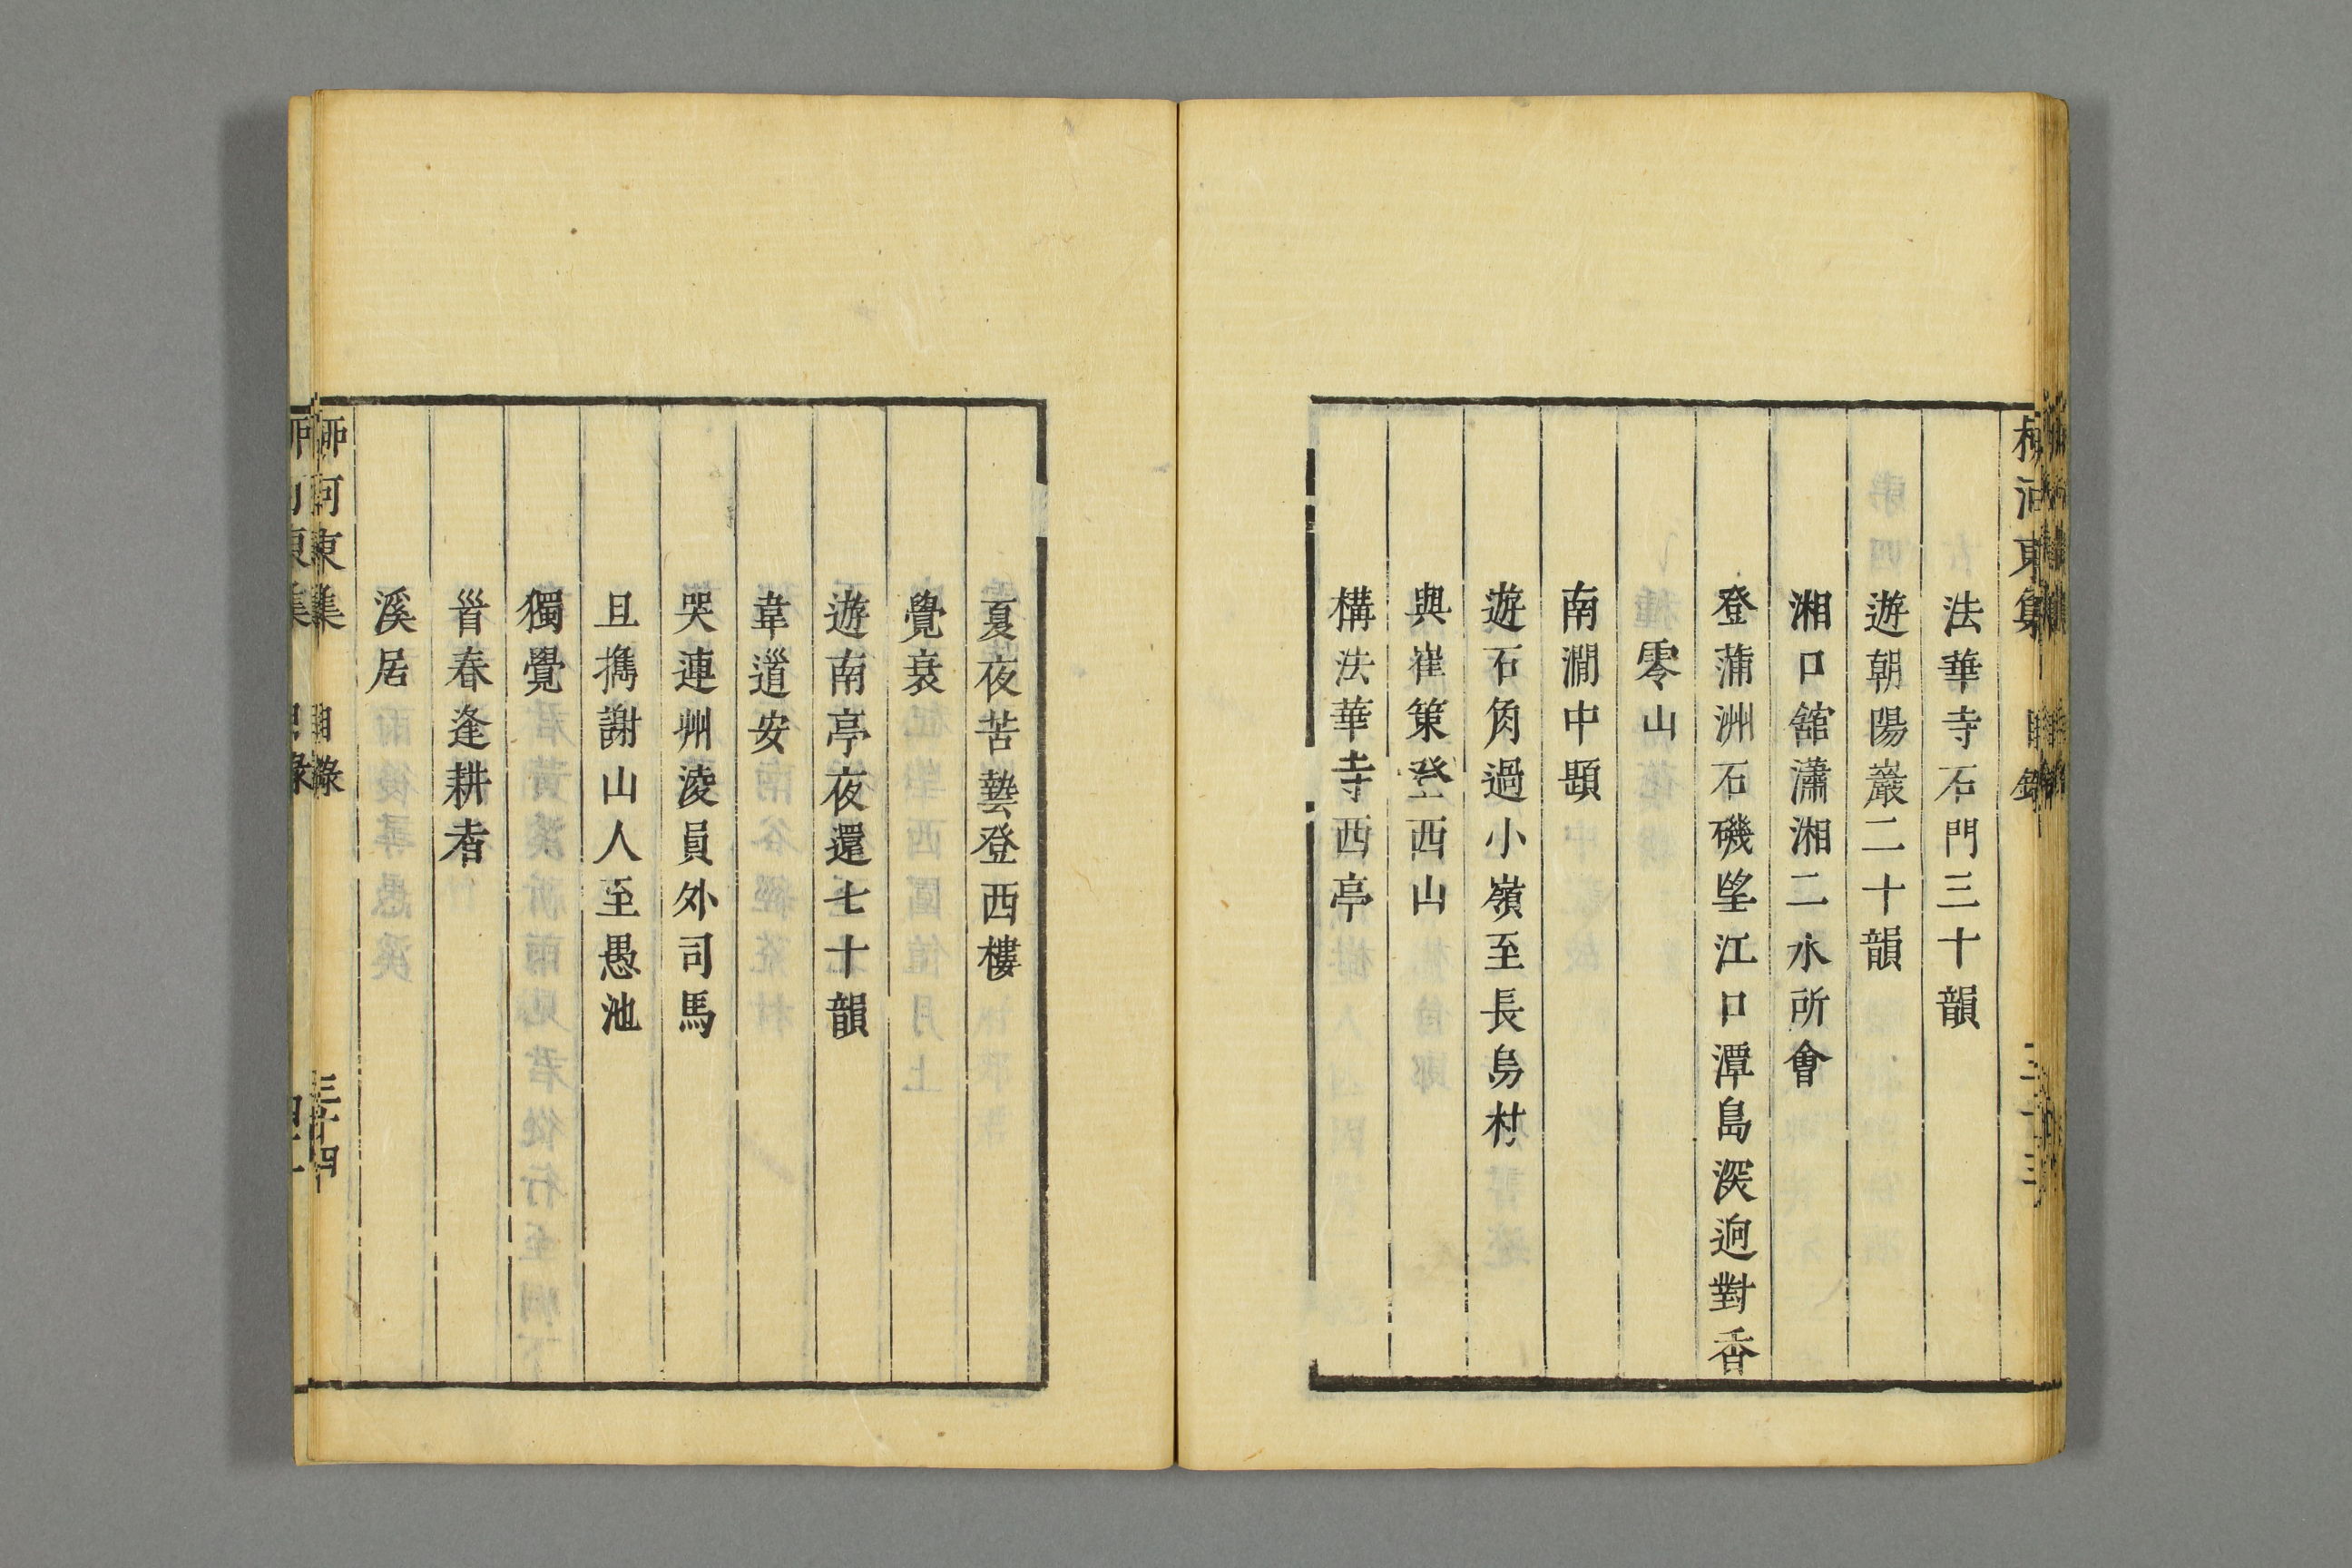 法華寺石門三十韻
遊朝陽巖二十韻
湘口舘瀟湘二水所會
登蒲洲石磯望江口潭島深逈對香
零山
南澗中題
遊石角過小嶺至長烏村
與崔策登西山
構法華寺西亭
夏夜苦熱登西樓
覺衰
遊南亭夜還七十韻
韋道安
哭連州淩員外司馬
且攜謝山人至愚池
獨覺
首春逢耕者
溪居
柳河東集 目錄 三十四